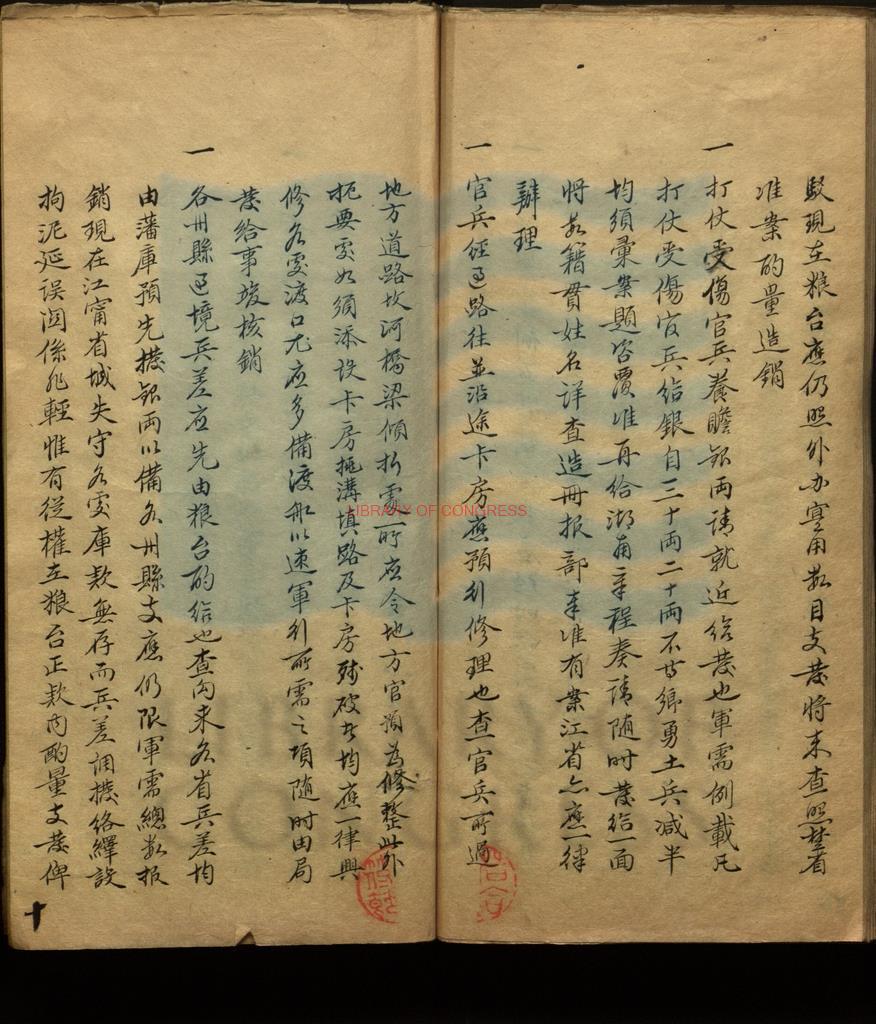 駁現在粮台應仍照外办寔用數目支發將来查照楚省
准案酌量造銷
一 打仗受傷官兵養贍銀両請就近給發也軍需例載凡
打仗受傷官兵給銀自三十両二十両不等鄉勇土兵減半
均須彙案題咨覆准再給湖南章程奏請随時發給一面
將數籍貫姓名詳查造冊报部奉准有案江省亦應一律
辦理
一 官兵經過路徃並沿途卡房應預行修理也查官兵所過
地方道路坎河橋梁傾折處所應令地方官酌為修整此外
扼要處如須添設卡房挑溝填路及卡房殘破者均應一律興
修各處渡口尤應多備渡船以速軍行所需之項随時由局
發給事竣核銷
一 各州縣過境兵差应先由粮台酌給也查向来各省兵差均
由藩庫預先撥銀両以備各州縣支應仍限軍需總數报
銷現在江甯省城失守各處庫款無存而兵差調撥絡繹設
拘泥延误関係非輕惟有從權在粮台正款内酌量支發俾
十
LIBRARY OF CONGRESS